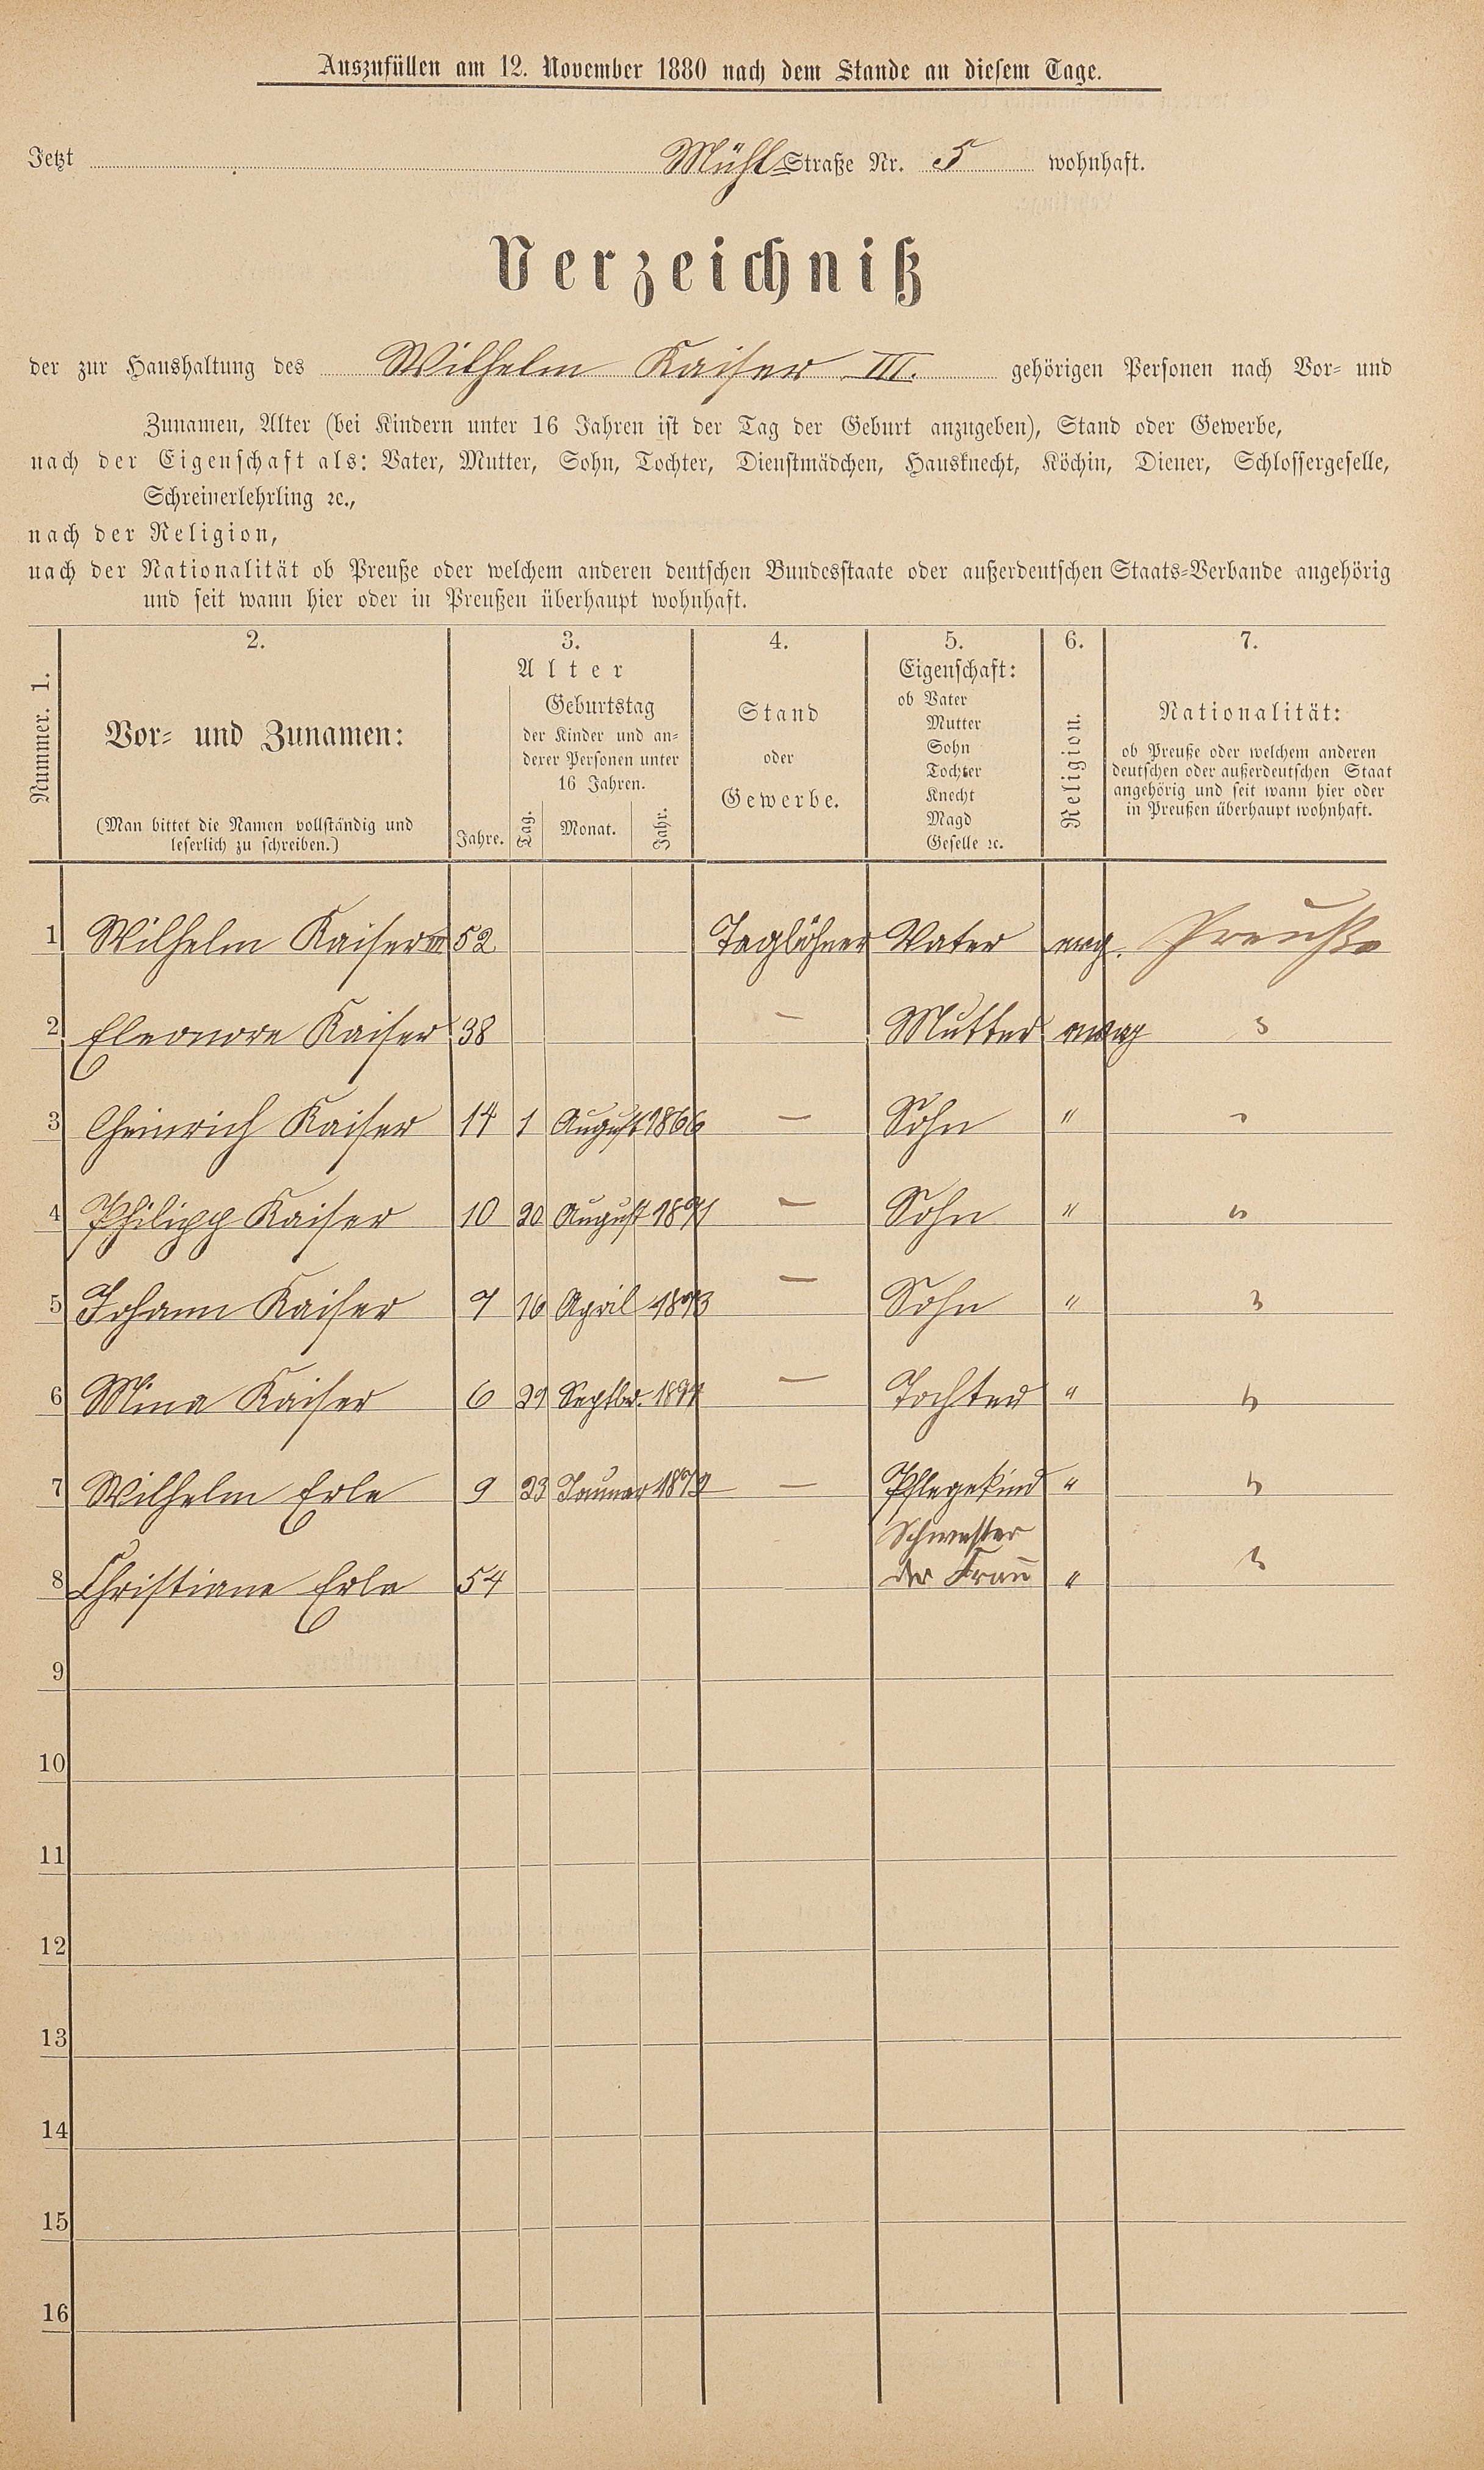 Auszufüllen am 12. November 1880 nach dem Stande an diesem Tage.
Jetzt Mühl Straße Nr. 5 wohnhaft.
Verzeichniß
der zur Haushaltung des Wilhelm Kaiser III. gehörigen Personen nach Vor- und
Zunamen, Alter (bei Kindern unter 16 Jahren ist der Tag der Geburt anzugeben), Stand oder Gewerbe,
nach der Eigenschaft als: Vater, Mutter, Sohn, Tochter, Dienstmädchen, Hausknecht, Köchin, Diener, Schlossergeselle,
Schreinerlehrling ꝛc.,
nach der Religion,
nach der Nationalität ob Preuße oder welchem anderen deutschen Bundesstaate oder außerdeutschen Staats-Verbande angehörig
und seit wann hier oder in Preußen überhaupt wohnhaft.
Nummer. 1.
2.
Vor- und Zunamen:
(Man bittet die Namen vollständig und
leserlich zu schreiben.)
3.
Alter
Jahre.
Geburtstag
der Kinder und an-
derer Personen unter
16 Jahren.
Tag. Monat. Jahr.
4.
Stand
oder
Gewerbe.
5.
Eigenschaft:
ob Vater
Mutter
Sohn
Tochter
Knecht
Magd
Geselle ꝛc.
6.
Religion.
7.
Nationalität:
ob Preuße oder welchem anderen
deutschen oder außerdeutschen Staat
angehörig und seit wann hier oder
in Preußen überhaupt wohnhaft.
1 Wilhelm Kaiser III 52 Taglöhner Vater evg. Preuße
2 Eleonore Kaiser 38 — Mutter evag "
3 Heinrich Kaiser 14 1 August 1866 — Sohn " "
4 Philipp Kaiser 10 20 August 1871 — Sohn " "
5 Johann Kaiser 7 16 April 1873 — Sohn " "
6 Mina Kaiser 6 29 Septbr. 1874 — Tochter " "
7 Wilhelm Erle 9 23 Januar 1872 — Pflegekind " "
Schwester
8 Christiane Erle 54 der Frau " "
9
10
11
12
13
14
15
16